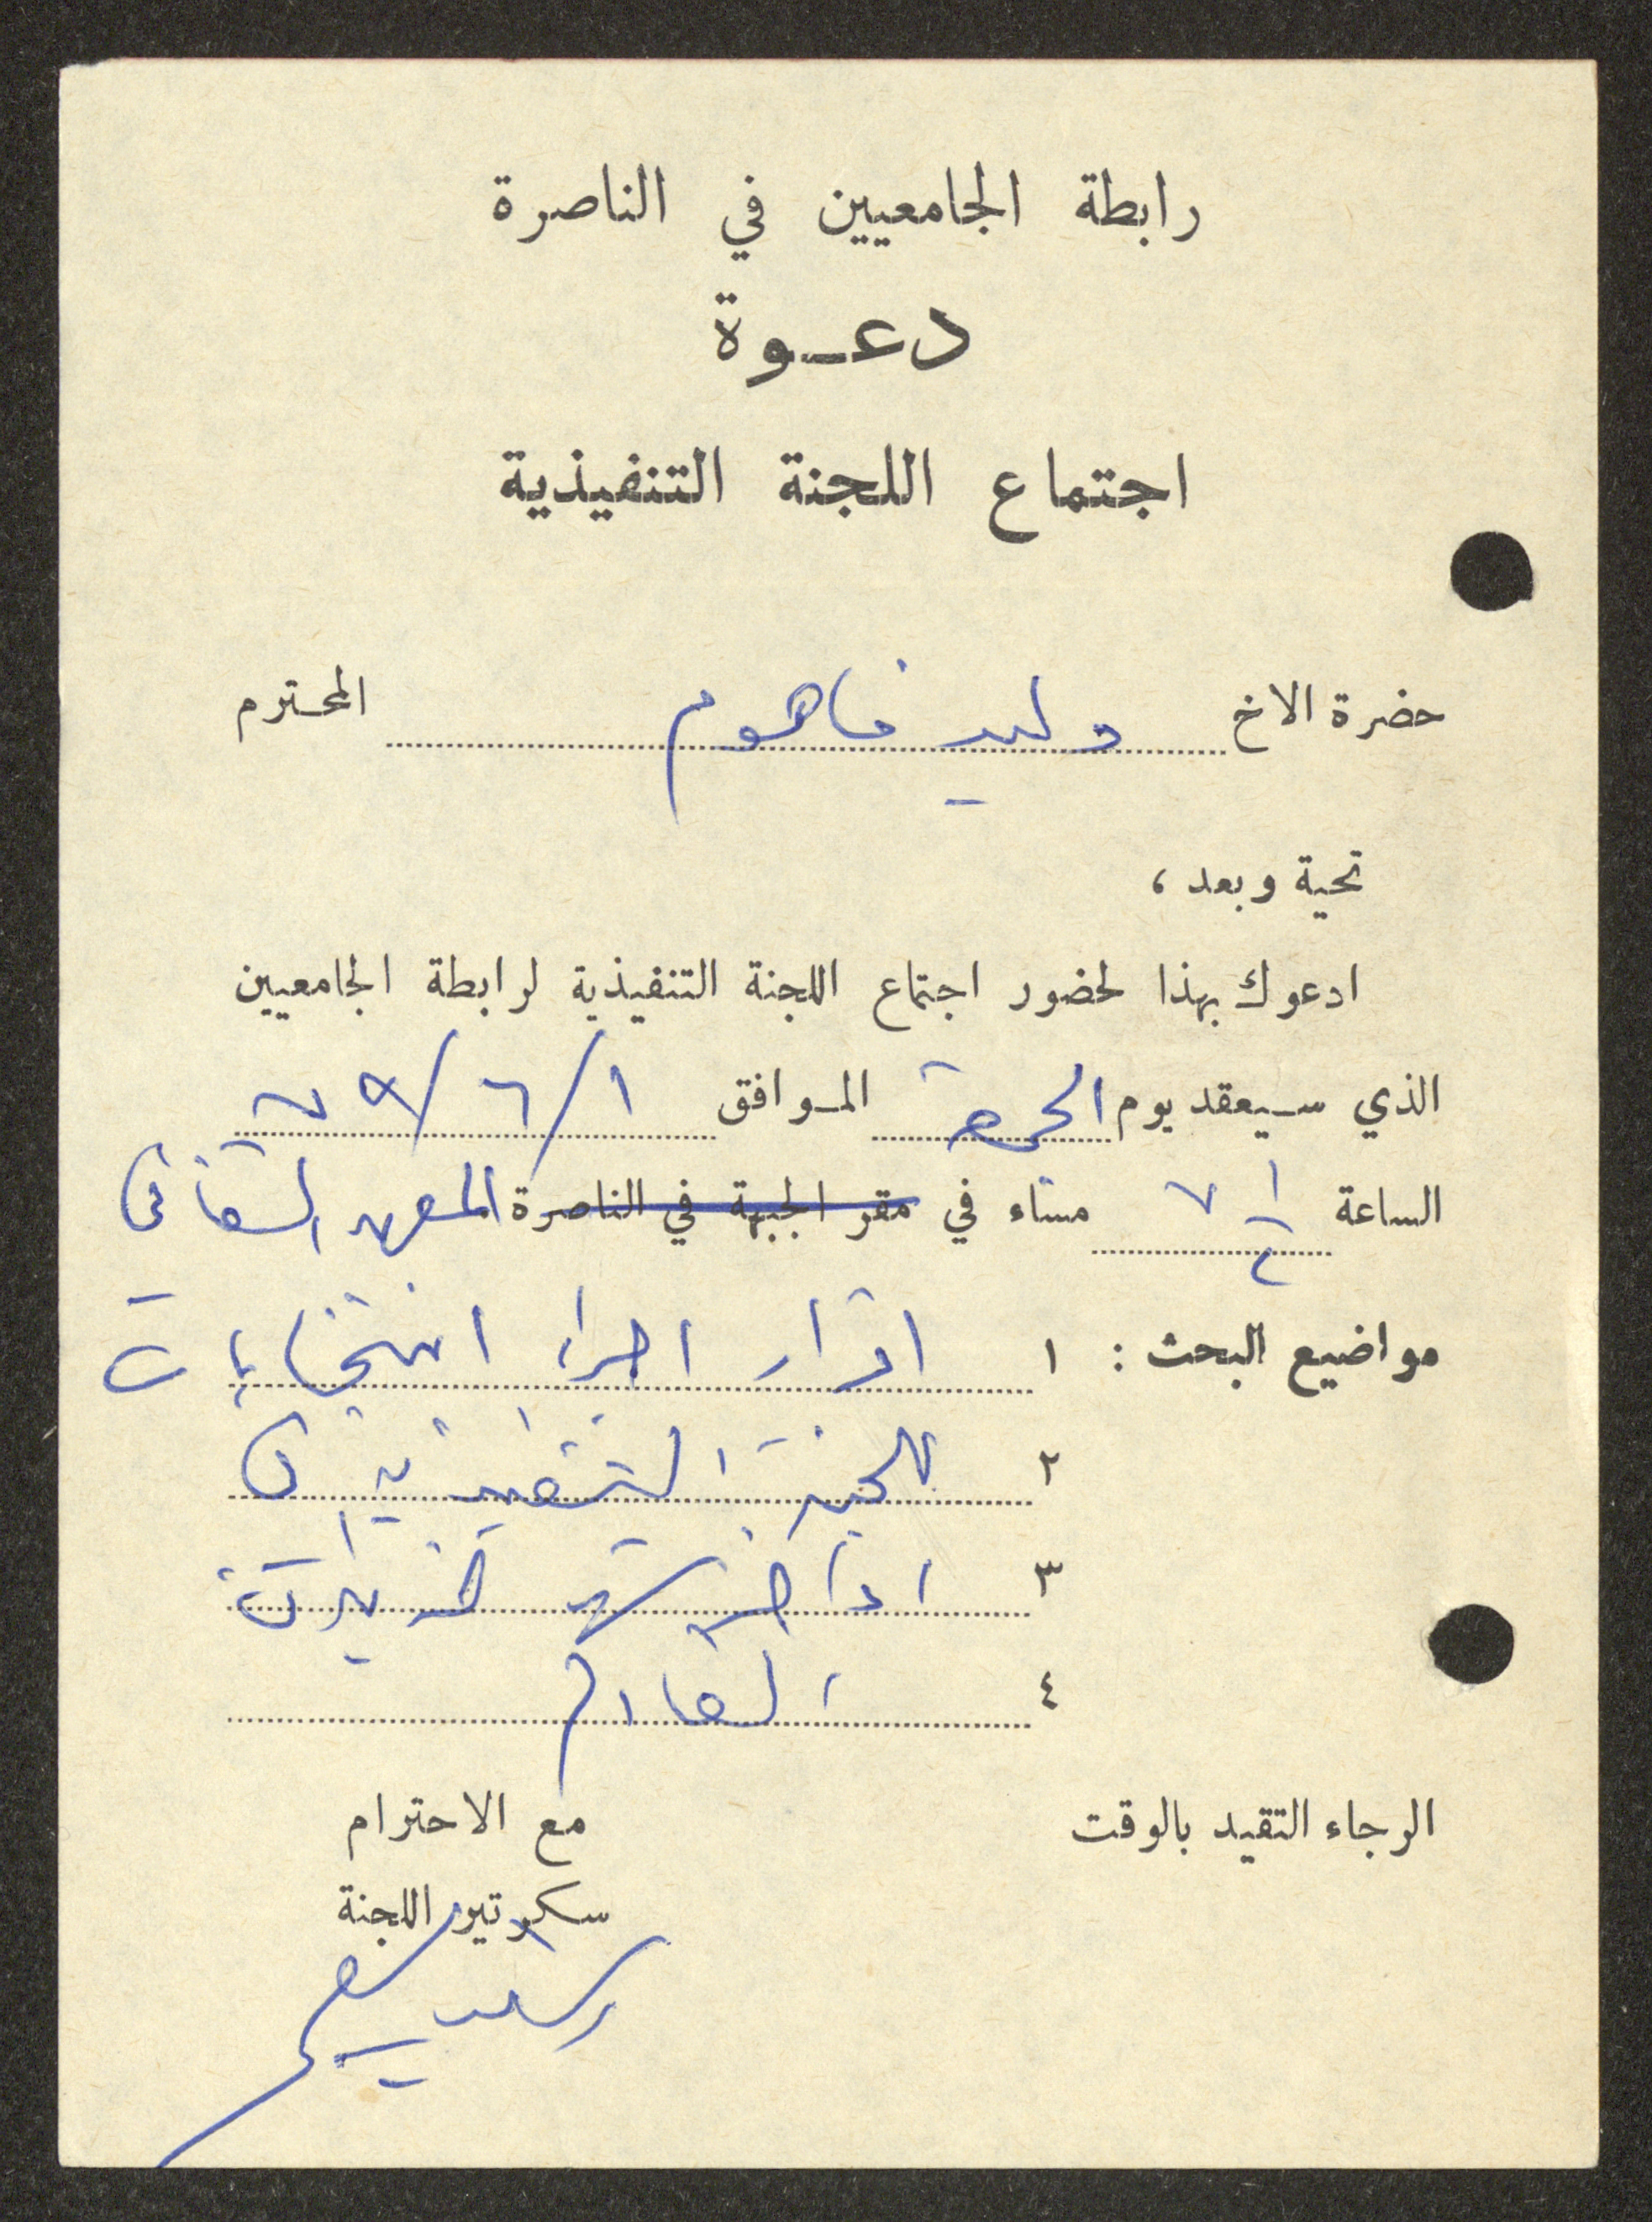 رابطة الجامعيين في الناصرة
دعـوة
اجتماع اللجنة التنفيذية
حضرة الاخ وليد فاهوم المحترم
تحية وبعد ،
ادعوك بهذا لحضور اجتماع اللجنة التنفيذية لرابطة الجامعيين
الذي سيعقد يوم الجمعة الموافق ١/٦/٧٩
الساعة ٧ ١/٢ مساء في مقر الجبهة في الناصرة المعهد الثقافي
مواضيع البحث : ١ اقرار اجراء انتخابات
٢ للجنة التنفيذية في
٣ اواخر شهر حزيران
٤ القادم
الرجاء التقيد بالوقت
مع الاحترام
سكرتير اللجنة